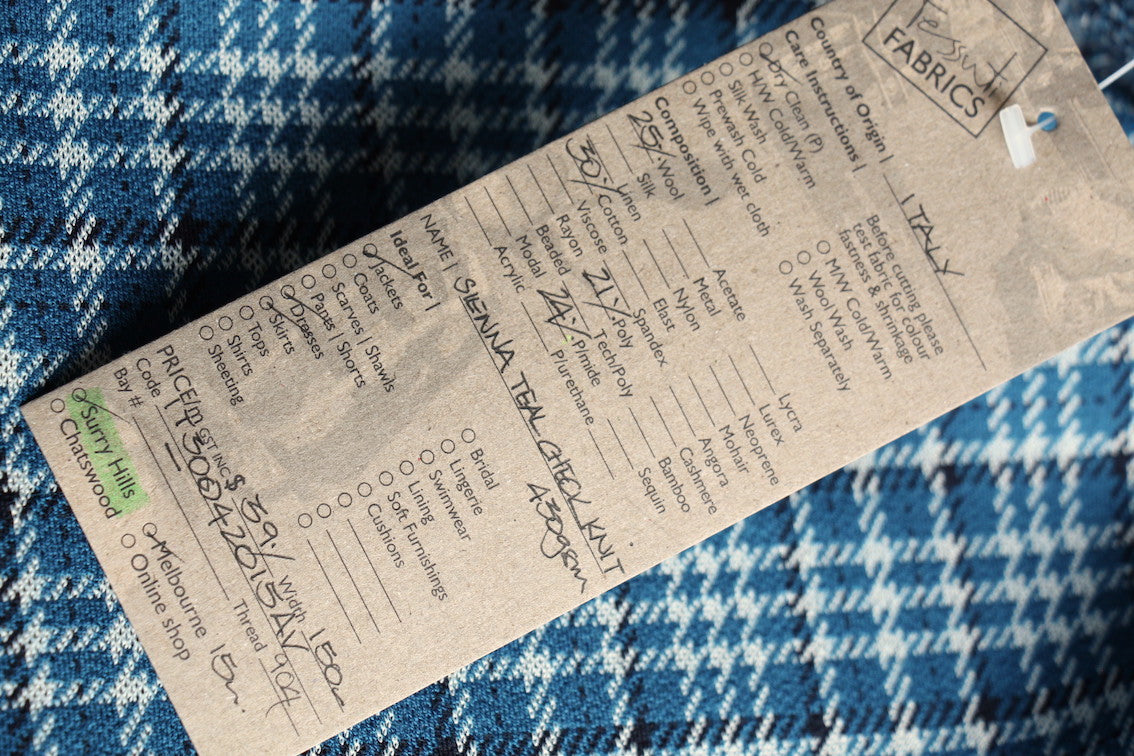 Tessuti
FABRICS
Country of Origin | ITALY
Care Instructions |
Dry Clean (P)
H/W Cold/Warm
Silk Wash
Prewash Cold
Wipe with wet cloth
Before cutting please
test fabric for colour
fastness & shrinkage
M/W Cold/Warm
Wool Wash
Wash Separately
Composition |
25% Wool
Silk
Linen
30% Cotton
Viscose
Rayon
Beaded
Modal
Acrylic
Acetate
Metal
Nylon
Elast
Spandex
21% Poly
Tech/Poly
24% P/mide
P/urethane
Lycra
Lurex
Neoprene
Mohair
Angora
Cashmere
Bamboo
Sequin
NAME | SIENNA TEAL CHECK KNIT
430gsm
Ideal For |
Jackets
Coats
Scarves | Shawls
Pants | Shorts
Dresses
Skirts
Tops
Shirts
Sheeting
Bridal
Lingerie
Swimwear
Lining
Soft Furnishings
Cushions
PRICE/m GST INC $ 39. Width 150
Code | T30042015AV
Bay # - Thread 904
Surry Hills
Chatswood
Melbourne 15m.
Online shop